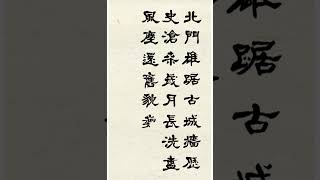 北門雄踞古城牆歷
史滄桑歲月長洗盡
風塵還舊貌